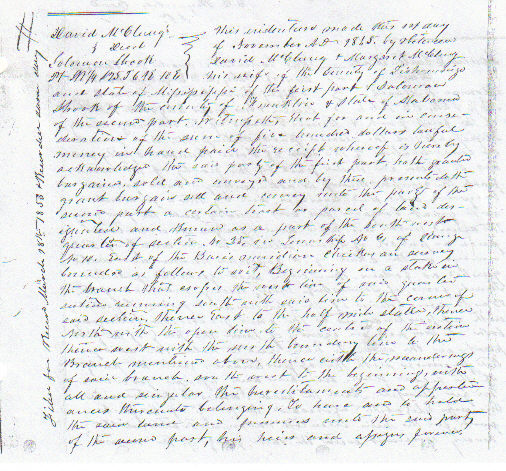 David McClung
& Deed
Solomon Shook
Pt NW4 S25 T6 R10E
This indenture made this 1st day
of November A.D. 1845. by & between
David McClung & Margaret McClung
his wife of the County of Tishomingo
and state of Mississippi of the first part & Solomon
Shook of the county of Franklin & State of Alabama
of the second part. Witnesseth, that for and in consi-
deration of the sum of five hundred dollars lawful
money in hand paid the receipt whereof is hereby
acknowledged the said party of the first part hath granted
bargained sold and conveyed and by these presents doth
grant bargain sell and convey unto the party of the
second part a certain tract or parcel of land des-
ignated and known as a part of the north west
quarter of section No 25, in Township No 6, of Range
No 10. East of the Basis meridian Chickasaw survey
bounded as follows to wit; Beginning on a stake on
the branch that crosses the west line of said quarter
section running south with said line to the corner of
said section, thence East to the half mile stake, thence
North with the open line to the center of the section
thence west with the north boundary line to the
Branch mentioned above, thence with the meanderings
of said branch south west to the beginning, with
all and singular the hereditaments and appurten-
ances thereunto belonging. To have and to hold
the said land and premises unto the said party
of the second part, his heirs and assigns forever
Filed for Record March 18th 1853 & Recorded same day